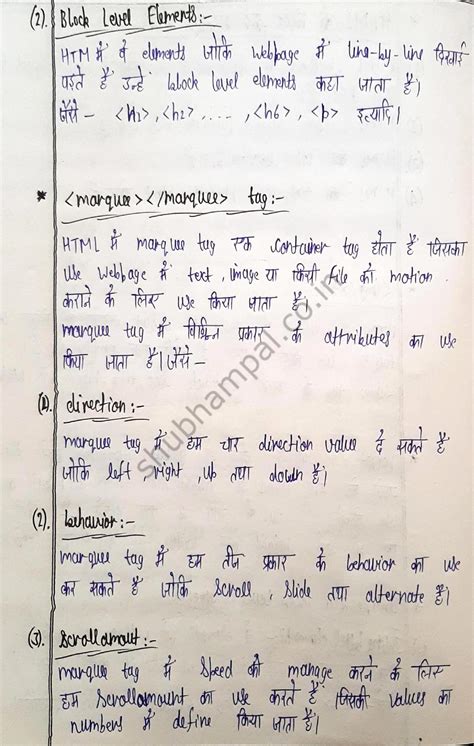 (2). Block Level Elements:-
HTM में वे elements जोकि webpage में line-by-line दिखाई
पड़ते हैं उन्हें block level elements कहा जाता है।
जैसे - <h1>, <h2>, ...., <h6>, <p> इत्यादि।
* <marquee></marquee> tag:-
HTML में marquee tag एक container tag होता है जिसका
use webpage में text, image या किसी file को motion
कराने के लिए use किया जाता है।
marquee tag में विभिन्न प्रकार के attributes का use
किया जाता है। जैसे -
(1). direction:-
marquee tag में हम चार direction value दे सकते हैं
जोकि left, right, up तथा down हैं।
(2). behavior:-
marquee tag में हम तीन प्रकार के behavior का use
कर सकते हैं जोकि scroll, slide तथा alternate हैं।
(3). scrollamout:-
marquee tag में speed को manage करने के लिए
हम scrollamount का use करते हैं जिसकी values का
numbers में define किया जाता है।
shubhampal.co.in